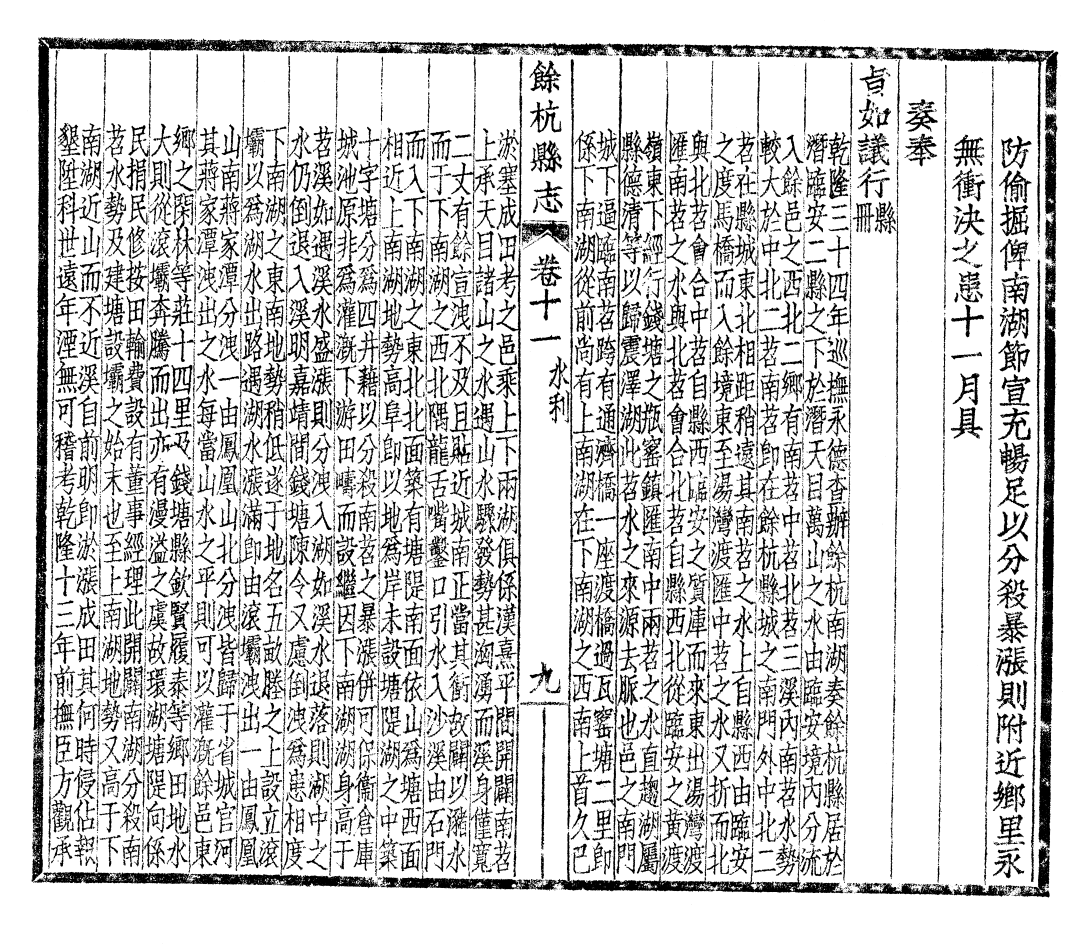 防偷掘俾南湖節宣充暢足以分殺暴漲則附近鄉里永
無衝決之患十一月具
奏奉
旨如議行縣冊
乾隆三十四年巡撫永德查辦餘杭南湖奏餘杭縣居於
潛臨安二縣之下於潛天目萬山之水由臨安境內分流
入餘邑之西北二鄉有南苕中苕北苕三溪內南苕水勢
較大於中北二苕南苕即在餘杭縣城之南門外中北二
苕在縣城東北相距稍遠其南苕之水上自縣西由臨安
之度馬橋而入餘境東至湯灣渡匯中苕之水又折而北
與北苕會合中苕自縣西臨安之質庫而來東出湯灣渡
匯南苕之水與北苕會合北苕自縣西北從臨安之黃渡
嶺東下經行錢塘之瓶窰鎮匯南中兩苕之水直趨湖屬
縣德清等以歸震澤湖此苕水之來源去脈也邑之南門
城下逼臨南苕跨有通濟橋一座渡橋過瓦窰塘二里即
係下南湖從前尚有上南湖在下南湖之西南上首久已
餘杭縣志
卷十一
水利
九
淤塞成田考之邑乘上下兩湖俱係漢熹平間開闢南苕
上承天目諸山之水遇山水驟發勢甚洶湧而溪身僅寬
二丈有餘宣洩不及且貼近城南正當其衝故闢以瀦水
而于下南湖之西北隅龍舌嘴鑿口引水入沙溪由石門
而入下南湖之東北面築有塘隄南面依山爲塘西面
相近上南湖地勢高阜即以地爲岸未設塘隄湖之中築
十字塘分爲四井藉以分殺南苕之暴漲併可保衛倉庫
城池原非爲灌溉下游田疇而設繼因下南湖湖身高于
苕溪如遇溪水盛漲則分洩入湖如溪水退落則湖中之
水仍倒退入溪明嘉靖間錢塘陳令又慮倒洩爲患相度
下南湖之東南地勢稍低遂于地名五畝塍之上設立滾
壩以爲湖水出路遇湖水漲滿即由滾壩洩出一由鳳凰
山南蔣家潭分洩一由鳳凰山北分洩皆歸于省城官河
其蔣家潭洩出之水每當山水之平則可以灌溉餘邑東
鄉之閑林等莊十四里及錢塘縣欽賢履泰等鄉田地水
大則從滾壩奔騰而出亦有漫溢之虞故環湖塘隄向係
民捐民修按田輸費設有董事經理此開闢南湖分殺南
苕水勢及建塘設壩之始末也至上南湖地勢又高于下
南湖近山而不近溪自前明即淤漲成田其何時侵佔報
墾陞科世遠年湮無可稽考乾隆十三年前撫臣方觀承